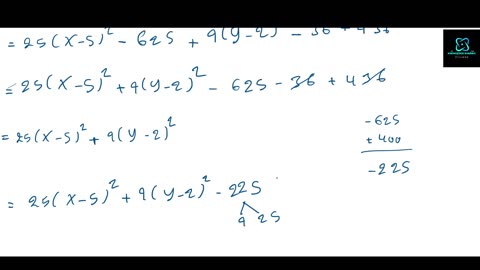 = 25(x-5)² - 625 + 9(y-2)² - 36 + 436
= 25(x-5)² + 9(y-2)² - 625 - 36 + 436
= 25(x-5)² + 9(y-2)²
-625
+400
-225
= 25(x-5)² + 9(y-2)² - 225
9 25